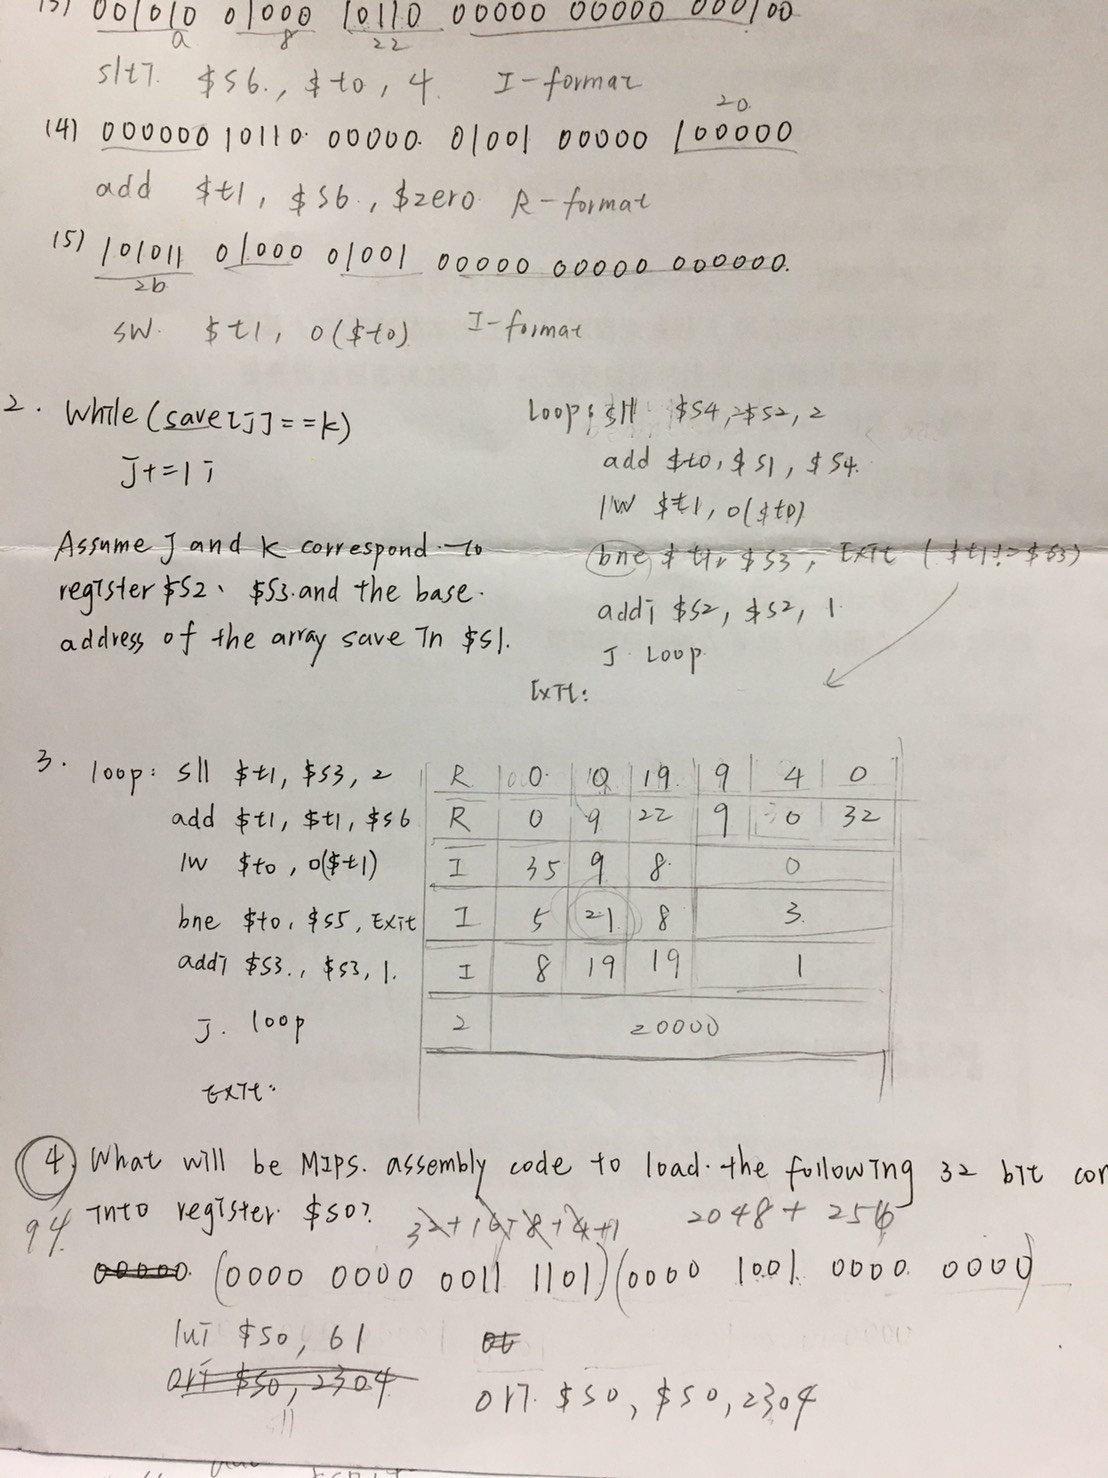 (3) 001010 01000 10110 00000 00000 000100
a 8 22
slti $s6., $t0, 4 I-format
20
(4) 000000 10110 00000 01001 00000 100000
add $t1, $s6, $zero R-format
(5) 101011 01000 01001 00000 00000 000000.
2b
sw. $t1, 0($t0) I-format
2. While (save[j]==k)
j+=1;
Assume j and k correspond to
register $s2、$s3 and the base
address of the array save in $s1.
Loop: sll $s4, $s2, 2
add $t0, $s1, $s4.
lw $t1, 0($t0)
bne $t1, $s3, Exit ($t1!=$s3)
addi $s2, $s2, 1
J Loop
Exit:
3. loop: sll $t1, $s3, 2 R 0 0 19 9 4 0
add $t1, $t1, $s6 R 0 9 22 9 0 32
lw $t0, 0($t1) I 35 9 8 0
bne $t0, $s5, Exit I 5 21 8 3
addi $s3., $s3, 1. I 8 19 19 1
J. loop 2 20000
Exit:
4. What will be MIPS. assembly code to load the following 32 bit con
94. into register $s0?
32+16+8+4+1 2048+256
00000. (0000 0000 0011 1101)(0000 1001 0000 0000)
lui $s0, 61
ori $s0, 2304
ori $s0, $s0, 2304